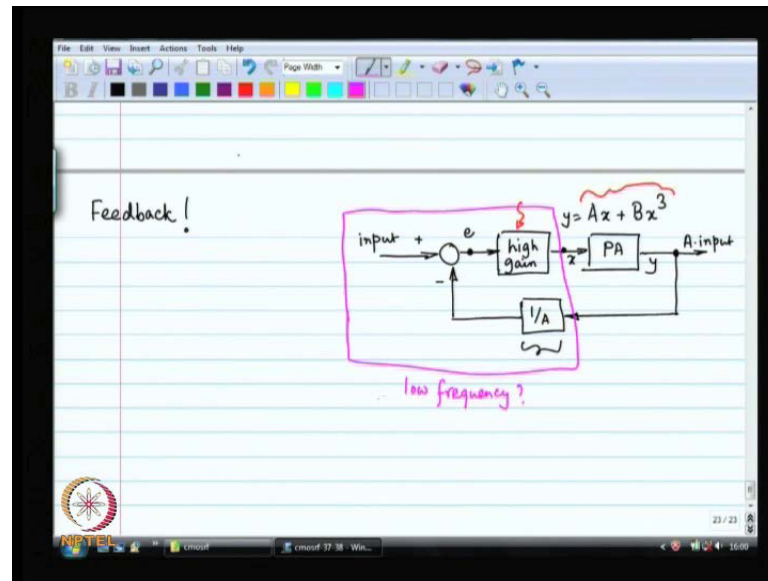 File Edit View Insert Actions Tools Help
Page Width
B I
Feedback!
y = Ax + Bx³
input + e high gain x PA y A.input
-
1/A
low frequency?
23 / 23
NPTEL cmosrf cmosrf-37-38 - Win... 16:00